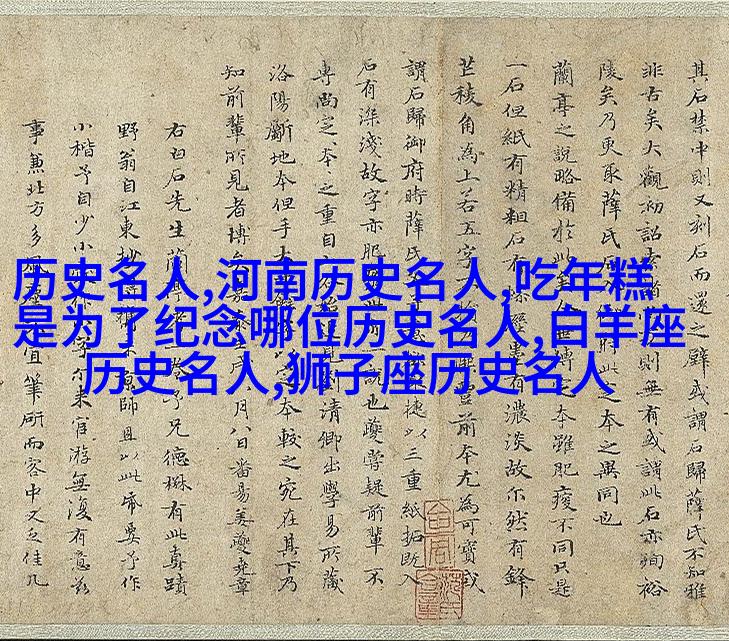 历史名人,河南历史名人,吃年糕
是为了纪念哪位历史名人,白羊座
历史名人,狮子座历史名人
其石禁中則又刻石而還之壁或謂石歸薛氏不知雅
非古矣大觀初詔則無有或謂此石亦殉裕
陵矣乃更取薛氏此之本之異同也
蘭亭之說略備於此傳定本雖肥瘦不同只是
一石但紙有精粗石有墨有濃淡故尔然有鋒
芒稜角為上若五字前本尤為可寶或
謂石歸御府時薛氏捷以三重紙拓既入
石有深淺故字亦肥說也夔嘗疑前輩不
專尚定本之重自劉清卿出學易所藏
洛陽斷地本但手大本較之宛在其下乃
知前輩所見者博矣月八日番昜姜夔堯章
右白石先生蘭亭予兄德楙有此真蹟
野翁自江東抄師且以此帋要予作
小楷予自少小字尔来官游無復有意茲
事兼北方多風宜筆研而客中又乏佳几